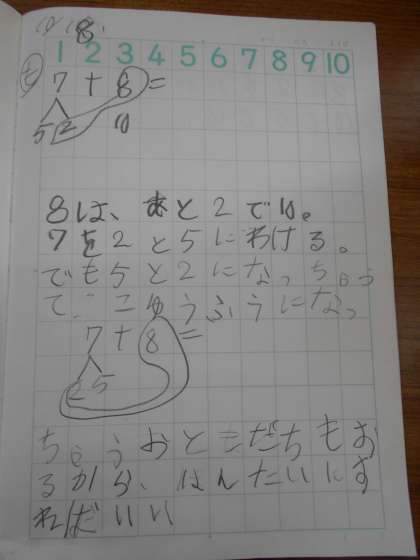 8
1 2 3 4 5 6 7 8 9 10
も 7+8=
5 2 10
8は、あと2で10。
7を2と5にわける。
でも5と2になっちゃう
て、こゆうふうになっ
7+8=
2 5
ちゃうおともだちもお
るから、はんたいにす
ればいい